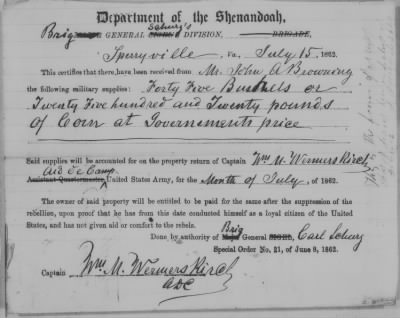 Department of the Shenandoah,
Brig GENERAL Schurz's DIVISION, BRIGADE,
Sperryville, Va. July 15, 1862.
This certifies that there have been received from Mr. John A Browning
the following military supplies: Forty Five Bushels or
Twenty Five hundred and Twenty pounds
of Corn at Governements price
Said supplies will be accounted for on the property return of Captain Wm M. Wermerskirch
Aid De Camp
Assistant Quartermaster, United States Army, for the Month of July, of 1862.
The owner of said property will be entitled to be paid for the same after the suppression of the
rebellion, upon proof that he has from this date conducted himself as a loyal citizen of the United
States, and has not given aid or comfort to the rebels.
Done, by authority of Brig General Carl Schurz
Special Order No. 21, of June 8, 1862.
Captain Wm. M. Wermerskirch
ADC